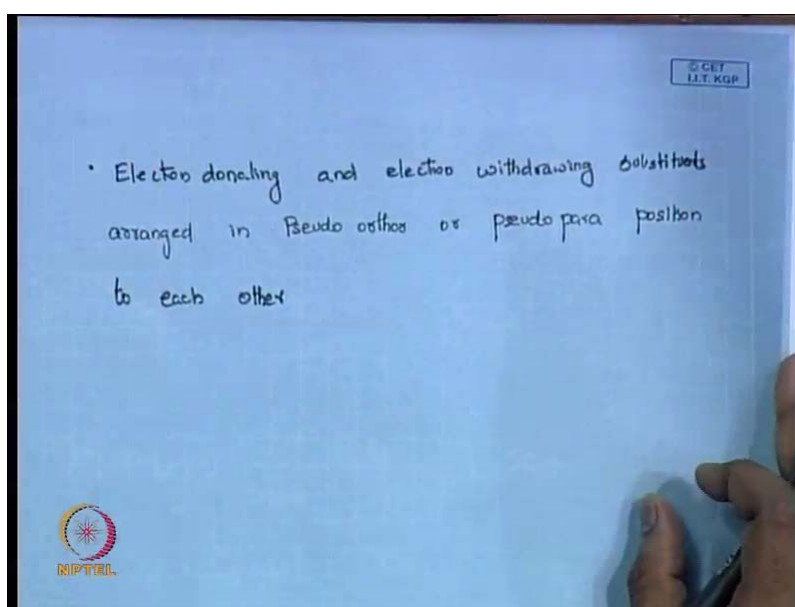 © CET
I.I.T. KGP
• Electron donating and electron withdrawing substituents
arranged in Pseudo orthos or pseudo para position
to each other
NPTEL